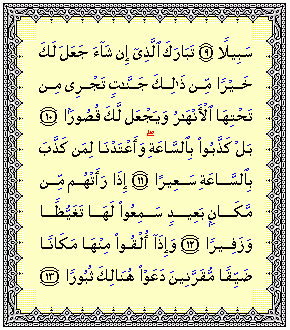 سَبِيلًا ۝٩ تَبَارَكَ ٱلَّذِىٓ إِن شَآءَ جَعَلَ لَكَ
خَيْرًا مِّن ذَٰلِكَ جَنَّـٰتٍ تَجْرِى مِن
تَحْتِهَا ٱلْأَنْهَـٰرُ وَيَجْعَل لَّكَ قُصُورًۢا ۝١٠
بَلْ كَذَّبُوا۟ بِٱلسَّاعَةِ ۖ وَأَعْتَدْنَا لِمَن كَذَّبَ
بِٱلسَّاعَةِ سَعِيرًا ۝١١ إِذَا رَأَتْهُم مِّن
مَّكَانٍۭ بَعِيدٍ سَمِعُوا۟ لَهَا تَغَيُّظًا
وَزَفِيرًا ۝١٢ وَإِذَآ أُلْقُوا۟ مِنْهَا مَكَانًا
ضَيِّقًا مُّقَرَّنِينَ دَعَوْا۟ هُنَالِكَ ثُبُورًا ۝١٣